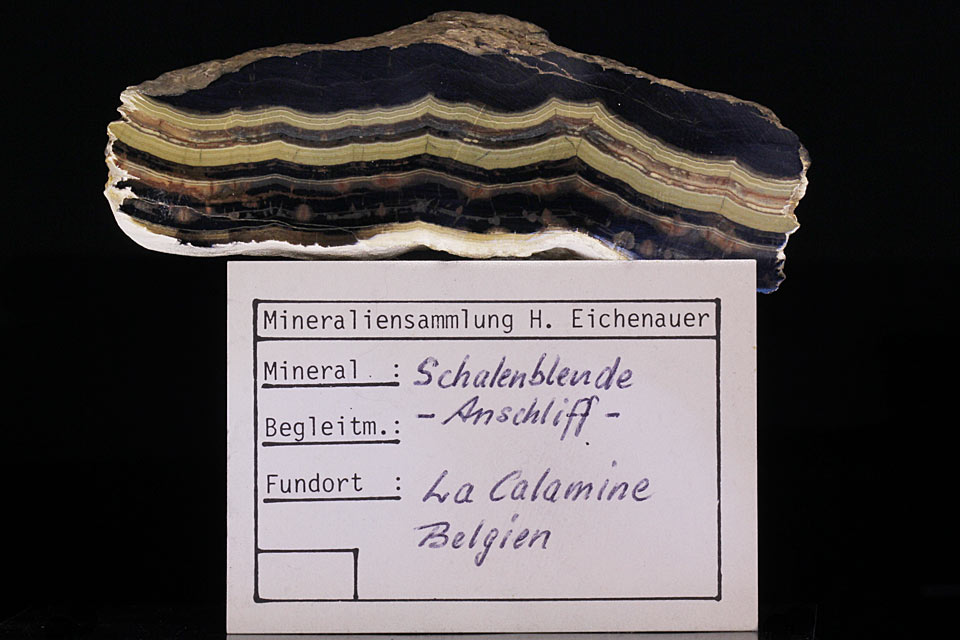 Mineraliensammlung H. Eichenauer
Mineral : Schalenblende
- Anschliff -
Begleitm.:
Fundort : La Calamine
Belgien